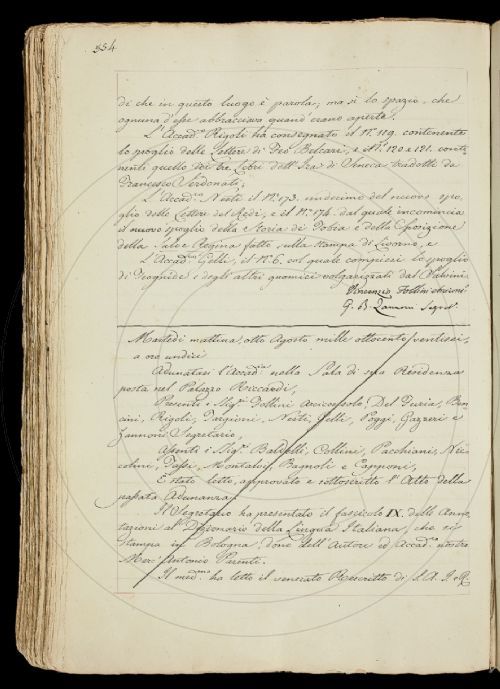 334
di che in questo luogo è parola; ma sì lo spazio, che
ognuna d'esse abbracciava quand'erano aperte.
L'Accad.co Rigoli ha consegnato il N.° 119. contenente
lo spoglio delle Lettere di Feo Belcari, e i N.i 120 e 121. conte-
nenti quello dei tre Libri dell'Ira di Seneca tradotti da
Francesco Serdonati;
L'Accad.co Nesti il N.° 173, undecimo del nuovo spo-
glio delle Lettere del Redi, e il N.° 174. dal quale incomincia
il nuovo spoglio della Storia di Tobia e della Esposizione
della Salve Regina fatto sulla stampa di Livorno, e
L'Accad.co Gelli, il N.° 6, col quale compiesi lo spoglio
di Teognide e degli altri gnomici volgarizzati dal Palsini
Vincenzio Follini
G. B. Zannoni Segret.
Martedì mattina, otto Agosto mille ottocento ventisei,
a ore undici
Adunatasi l'Accad.a nella Sala di sua Residenza
posta nel Palazzo Riccardi,
Presenti i Sig.ri Follini Arciconsolo, Del Furia, Ben-
cini, Rigoli, Targioni, Nesti, Gelli, Poggi, Gazzeri e
Zannoni Segretario,
Assenti i Sig.ri Baldelli, Collini, Pacchiani, Nic-
colini, Tassi, Montalvi, Bagnoli e Capponi,
È stato letto, approvato e sottoscritto l'Atto della
passata Adunanza.
Il Segretario ha presentato il fascicolo IX. dell'Anno-
tazioni al Dizionario della Lingua Italiana, che si
stampa in Bologna, dono dell'Autore ed Accad.co nostro
Marc'Antonio Parenti.
Il med.mo ha letto il venerato Rescritto di S. A. I. e R.